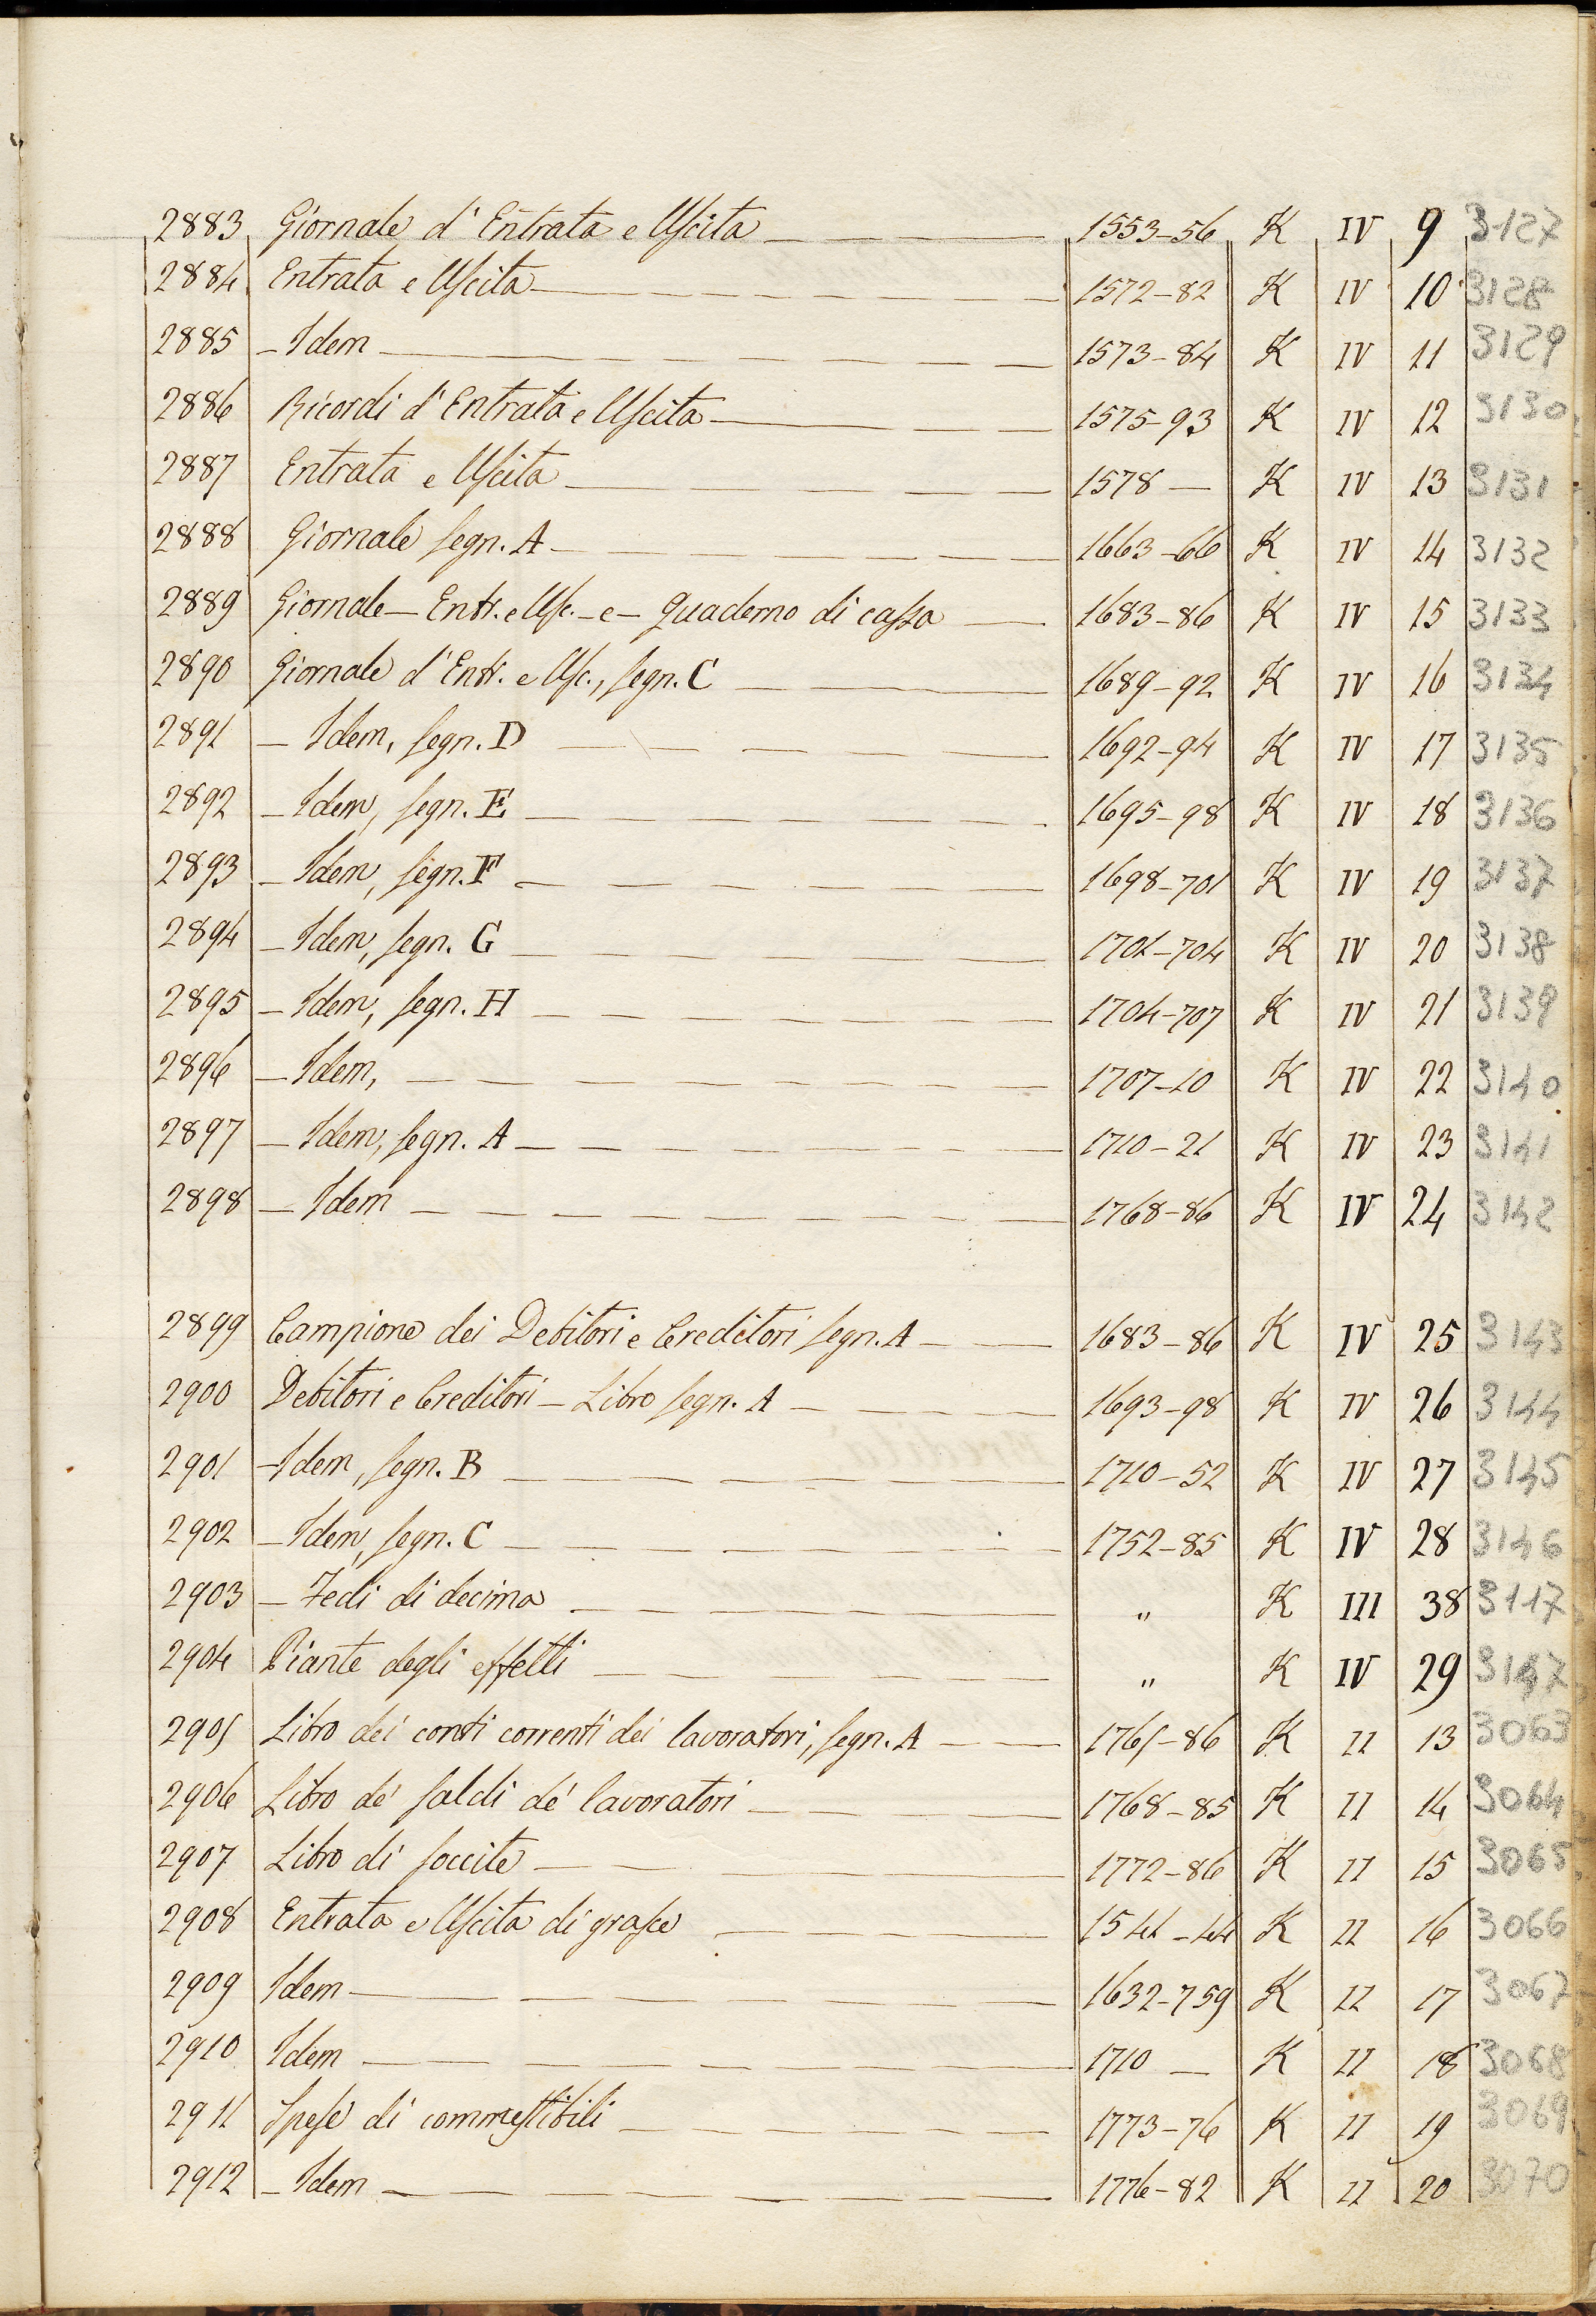 2883 Giornale d'Entrata e Uscita 1553-56 K IV 9 3127
2884 Entrata e Uscita 1572-82 K IV 10 3128
2885 - Idem 1573-84 K IV 11 3129
2886 Ricordi d'Entrata e Uscita 1575-93 K IV 12 3130
2887 Entrata e Uscita 1578 - K IV 13 3131
2888 Giornale segn. A 1663-66 K IV 14 3132
2889 Giornale - Entr. e Usc. - e - Quaderno di cassa 1683-86 K IV 15 3133
2890 Giornale d'Entr. e Usc., segn. C 1689-92 K IV 16 3134
2891 - Idem, segn. D 1692-94 K IV 17 3135
2892 - Idem, segn. E 1695-98 K IV 18 3136
2893 - Idem, segn. F 1698-701 K IV 19 3137
2894 - Idem, segn. G 1701-704 K IV 20 3138
2895 - Idem, segn. H 1704-707 K IV 21 3139
2896 - Idem, 1707-10 K IV 22 3140
2897 - Idem, segn. A 1710-21 K IV 23 3141
2898 - Idem 1768-86 K IV 24 3142
2899 Campione dei Debitori e Creditori segn. A 1683-86 K IV 25 3143
2900 Debitori e Creditori - Libro segn. A 1693-98 K IV 26 3144
2901 - Idem, segn. B 1710-52 K IV 27 3145
2902 - Idem, segn. C 1752-85 K IV 28 3146
2903 - Fedi di decima " K III 38 3117
2904 Piante degli effetti " K IV 29 3147
2905 Libro dei conti correnti dei lavoratori, segn. A 1765-86 K II 13 3063
2906 Libro de' saldi de' lavoratori 1768-85 K II 14 3064
2907 Libro di soccite 1772-86 K II 15 3065
2908 Entrata e Uscita di grasce 1541-44 K II 16 3066
2909 Idem 1632-759 K II 17 3067
2910 Idem 1710 - K II 18 3068
2911 Spese di commestibili 1773-76 K II 19 3069
2912 - Idem 1776-82 K II 20 3070